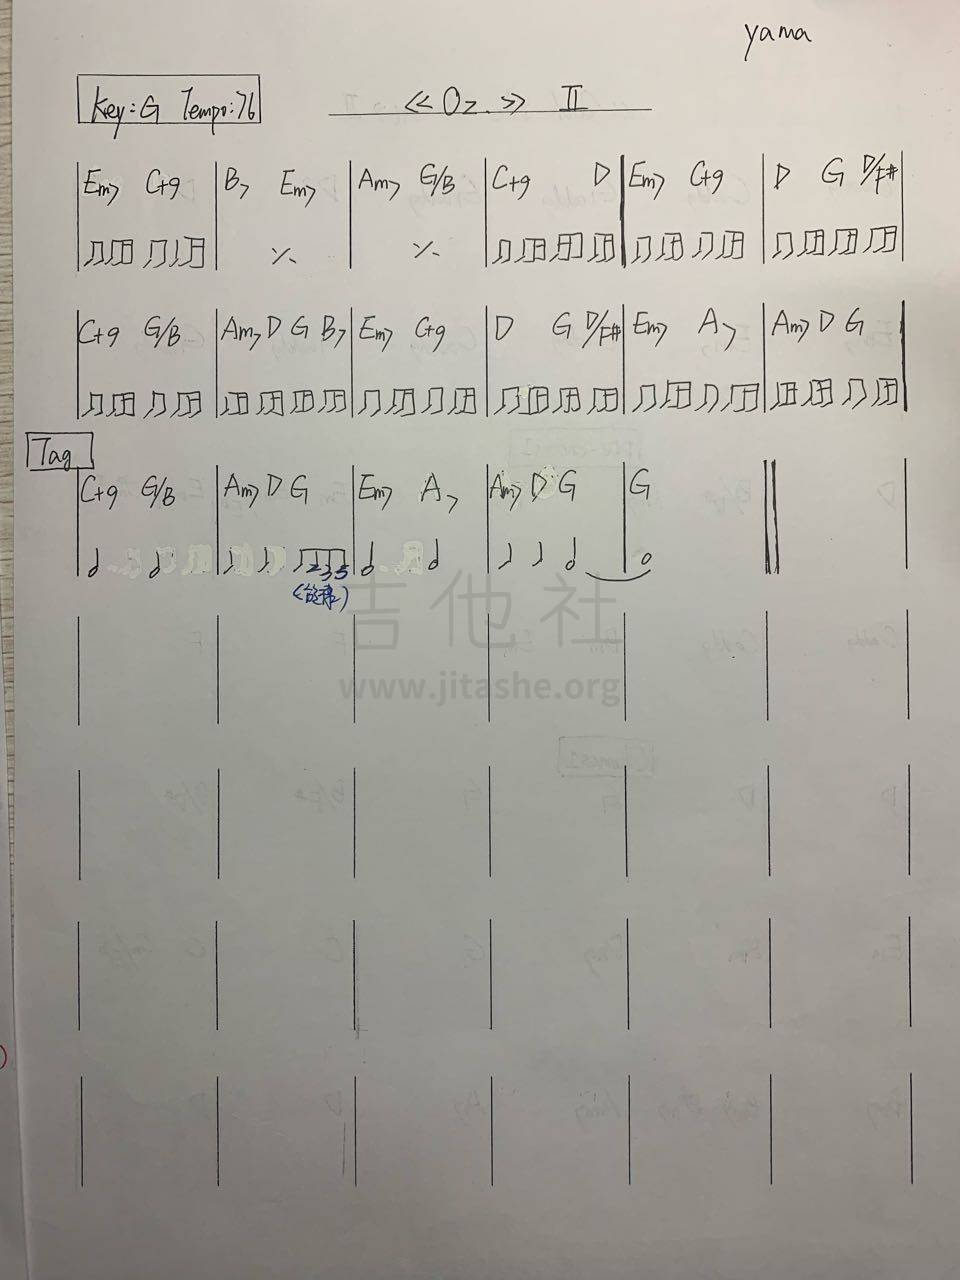 yama
Key:G Tempo:76 《Oz.》 II
Em7 C+9 B7 Em7 Am7 G/B C+9 D Em7 C+9 D G D/F#
C+9 G/B Am7 D G B7 Em7 C+9 D G D/F# Em7 A7 Am7 D G
Tag
C+9 G/B Am7 D G Em7 A7 Am7 D G G
235
吉他社
www.jitashe.org